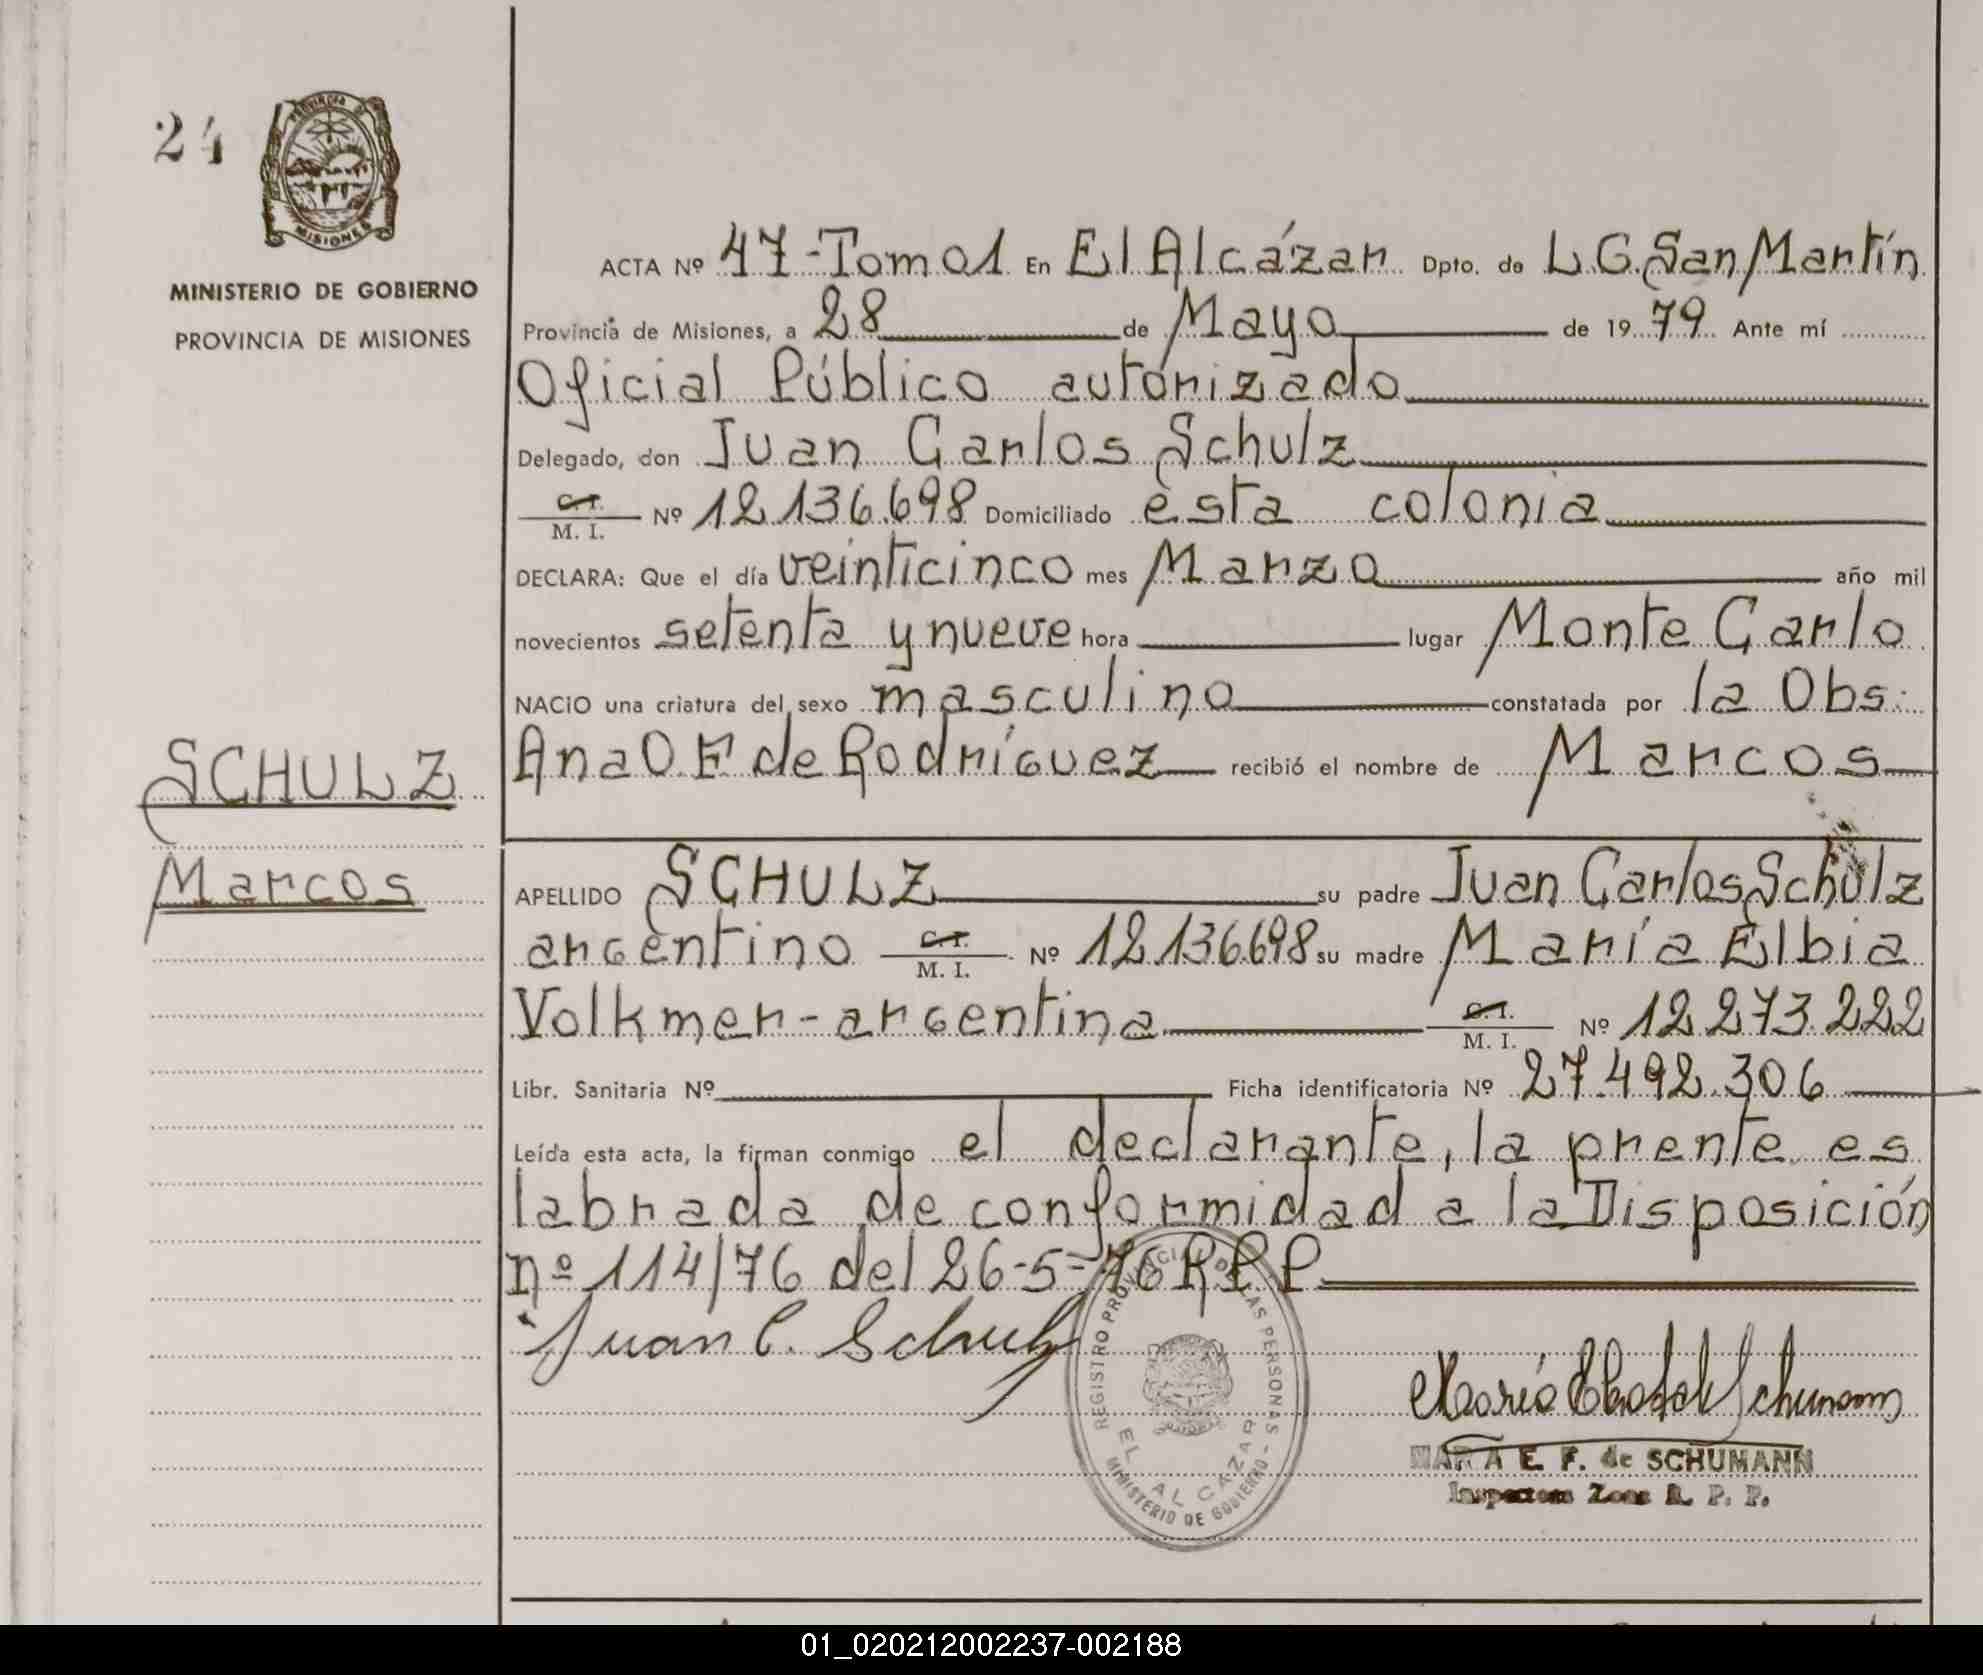 24
PROVINCIA DE
MISIONES
MINISTERIO DE GOBIERNO
PROVINCIA DE MISIONES
SCHULZ
Marcos
ACTA Nº 47-Tomo 1 En El Alcázar Dpto. de L.G. San Martín
Provincia de Misiones, a 28 de Mayo de 1979 Ante mí
Oficial Público autórizado
Delegado, don Juan Carlos Schulz
C.I.
M. I. Nº 12.136.698 Domiciliado ésta colonia
DECLARA: Que el día veinticinco mes Marzo año mil
novecientos setenta y nueve hora lugar Monte Carlo
NACIO una criatura del sexo masculino constatada por la Obs:
Ana O. F de Rodríguez recibió el nombre de Marcos
APELLIDO SCHULZ su padre Juan Carlos Schulz
argentino C.I. M. I. Nº 12.136.698 su madre María Elbia
Volkmer-argentina C.I. M. I. Nº 12.273.222
Libr. Sanitaria Nº Ficha identificatoria Nº 27.492.306
Leída esta acta, la firman conmigo el declarante, la prente es
labrada de conformidad a la Disposición
nº 114/76 del 26-5-76 RPP
Juan C. Schulz
REGISTRO PROVINCIAL DE LAS PERSONAS -
MINISTERIO DE GOBIERNO -
EL ALCAZAR
MARIA E. F. de SCHUMANN
Inspectora Zona R. P. P.
01_020212002237-002188